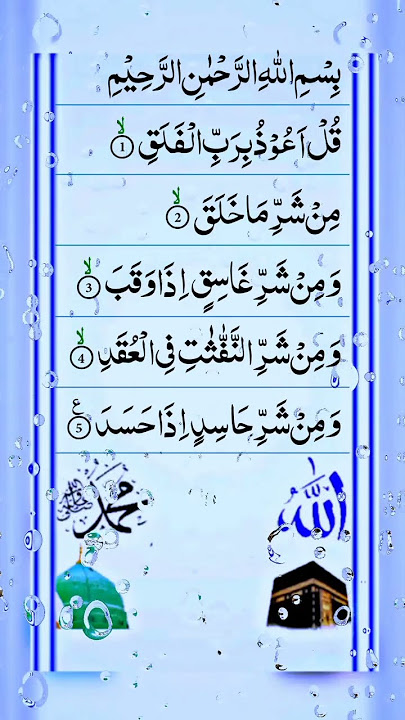 بِسْمِ اللهِ الرَّحْمٰنِ الرَّحِيْمِ
قُلْ اَعُوْذُ بِرَبِّ الْفَلَقِ ۙ 1
مِنْ شَرِّ مَا خَلَقَ ۙ 2
وَ مِنْ شَرِّ غَاسِقٍ اِذَا وَقَبَ ۙ 3
وَ مِنْ شَرِّ النَّفّٰثٰتِ فِی الْعُقَدِ ۙ 4
وَ مِنْ شَرِّ حَاسِدٍ اِذَا حَسَدَ ع 5
اللّٰهُ
محمد ﷺ